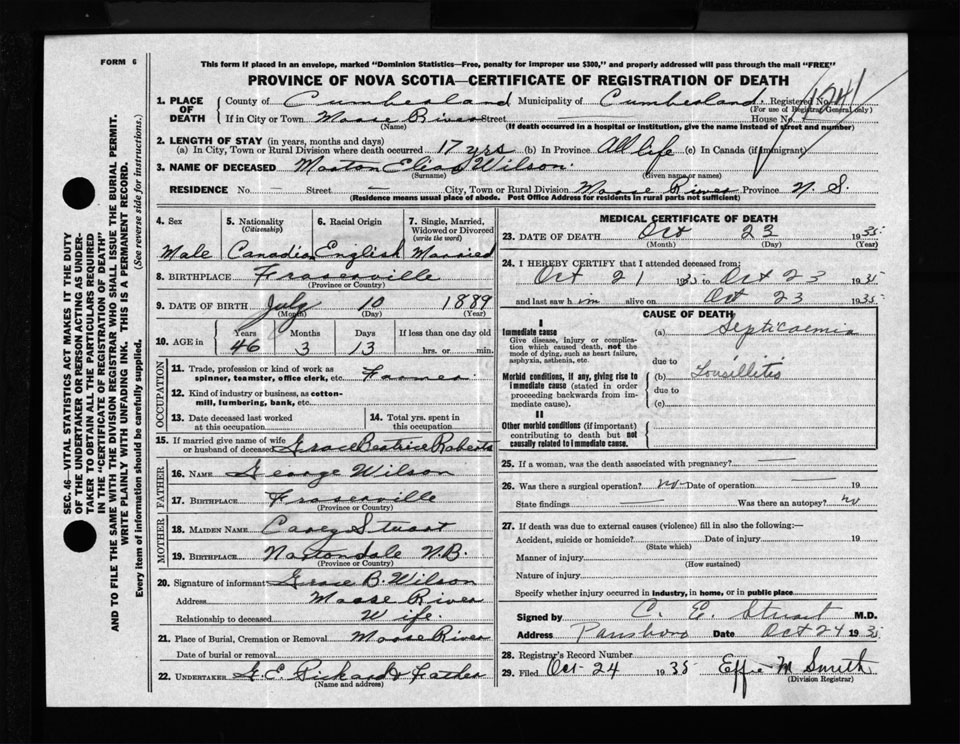 FORM 6
This form if placed in an envelope, marked "Dominion Statistics—Free, penalty for improper use $300," and properly addressed will pass through the mail "FREE"
PROVINCE OF NOVA SCOTIA—CERTIFICATE OF REGISTRATION OF DEATH
1. PLACE OF DEATH
County of Cumberland Municipality of Cumberland. Registered No.
(For use of Registrar General only)
If in City or Town Moose River Street — House No.
(Name) (If death occurred in a hospital or institution, give the name instead of street and number)
2. LENGTH OF STAY (in years, months and days)
(a) In City, Town or Rural Division where death occurred 17 yrs (b) In Province All life (c) In Canada (if immigrant)
3. NAME OF DECEASED Morton Elias Wilson
(Surname) (Given name or names)
RESIDENCE No. — Street — City, Town or Rural Division Moose River Province N. S.
(Residence means usual place of abode. Post Office Address for residents in rural parts not sufficient)
4. Sex
Male
5. Nationality
(Citizenship)
Canadian
6. Racial Origin
English
7. Single, Married, Widowed or Divorced
(write the word)
Married
8. BIRTHPLACE Fraserville
(Province or Country)
9. DATE OF BIRTH July 10 1889
(Month) (Day) (Year)
10. AGE in
Years Months Days If less than one day old
46 3 13 hrs. or min.
OCCUPATION
11. Trade, profession or kind of work as
spinner, teamster, office clerk, etc. Farmer
12. Kind of industry or business, as cotton-
mill, lumbering, bank, etc.
13. Date deceased last worked
at this occupation
14. Total yrs. spent in
this occupation
15. If married give name of wife
or husband of deceased Grace Beatrice Roberts
FATHER
16. NAME George Wilson
17. BIRTHPLACE Fraserville
(Province or Country)
MOTHER
18. MAIDEN NAME Stuart
19. BIRTHPLACE N.B.
(Province or Country)
20. Signature of informant Grace B. Wilson
Address Moose River
Relationship to deceased Wife
21. Place of Burial, Cremation or Removal Moose River
Date of burial or removal
22. UNDERTAKER G.E. Father
(Name and address)
MEDICAL CERTIFICATE OF DEATH
23. DATE OF DEATH Oct 23 1935
(Month) (Day) (Year)
24. I HEREBY CERTIFY that I attended deceased from:
Oct 21 1935 to Oct 23 1935
and last saw him alive on Oct 23 1935
CAUSE OF DEATH
I
Immediate cause
Give disease, injury or complica-
tion which caused death, not the
mode of dying, such as heart failure,
asphyxia, asthenia, etc.
(a) Septicaemia
due to
Morbid conditions, if any, giving rise to
immediate cause (stated in order
proceeding backwards from im-
mediate cause).
(b) Tonsillitis
due to
(c)
II
Other morbid conditions (if important)
contributing to death but not
causally related to immediate cause.
25. If a woman, was the death associated with pregnancy? —
26. Was there a surgical operation? no Date of operation — 19
State findings — Was there an autopsy? no
27. If death was due to external causes (violence) fill in also the following:—
Accident, suicide or homicide? Date of injury 19
(State which)
Manner of injury
(How sustained)
Nature of injury
Specify whether injury occurred in industry, in home, or in public place
Signed by C. E. Stuart M.D.
Address Parrsboro Date Oct 24 1935
28. Registrar's Record Number
29. Filed Oct- 24 1935 Effie M Smith
(Division Registrar)
SEC. 46—VITAL STATISTICS ACT MAKES IT THE DUTY
OF THE UNDERTAKER OR PERSON ACTING AS UNDER-
TAKER TO OBTAIN ALL THE PARTICULARS REQUIRED
IN THE "CERTIFICATE OF REGISTRATION OF DEATH"
AND TO FILE THE SAME WITH THE DIVISION REGISTRAR WHO SHALL ISSUE THE BURIAL PERMIT.
WRITE PLAINLY WITH UNFADING INK. THIS IS A PERMANENT RECORD.
Every item of information should be carefully supplied. (See reverse side for instructions.)